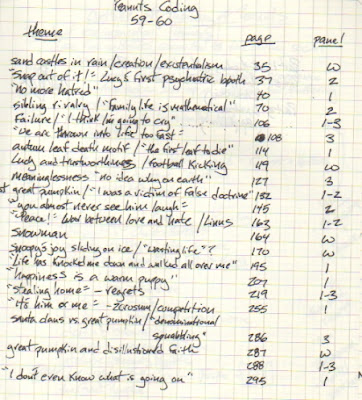 Peanuts Coding
59-60
theme page panel
sand castles in rain/creation/existentialism 35 W
"Snap out of it!" Lucy's first psychiatric booth 37 2
"no more hatred" 40 1
sibling rivalry/"family life is mathematical" 70 2
Failure/"I think I'm going to cry" 106 1-3
"we are thrown into life too fast" 108 3
autumn leaf death motif/"the first leaf to die" 114 1
Lucy and trustworthiness/football kicking 119 W
meaninglessness "no idea why on earth" 127 3
great pumpkin/"I was a victim of false doctrine" 132 1-2
"you almost never see him laugh" 145 2
"Peace!" War between love and hate/Linus 163 1-2
snowman 164 W
snoopy's joy sliding on ice/"wasting life"? 170 W
"Life has knocked me down and walked all over me" 195 1
"happiness is a warm puppy" 207 1
"stealing home" - regrets 219 1-3
"It's him or me" - zerosum/competition 255 1
santa claus vs. great pumpkin/"denominational
squabbling" 286 3
great pumpkin and disillusioned faith 287 W
288 1-3
"I don't even know what is going on" 295 1